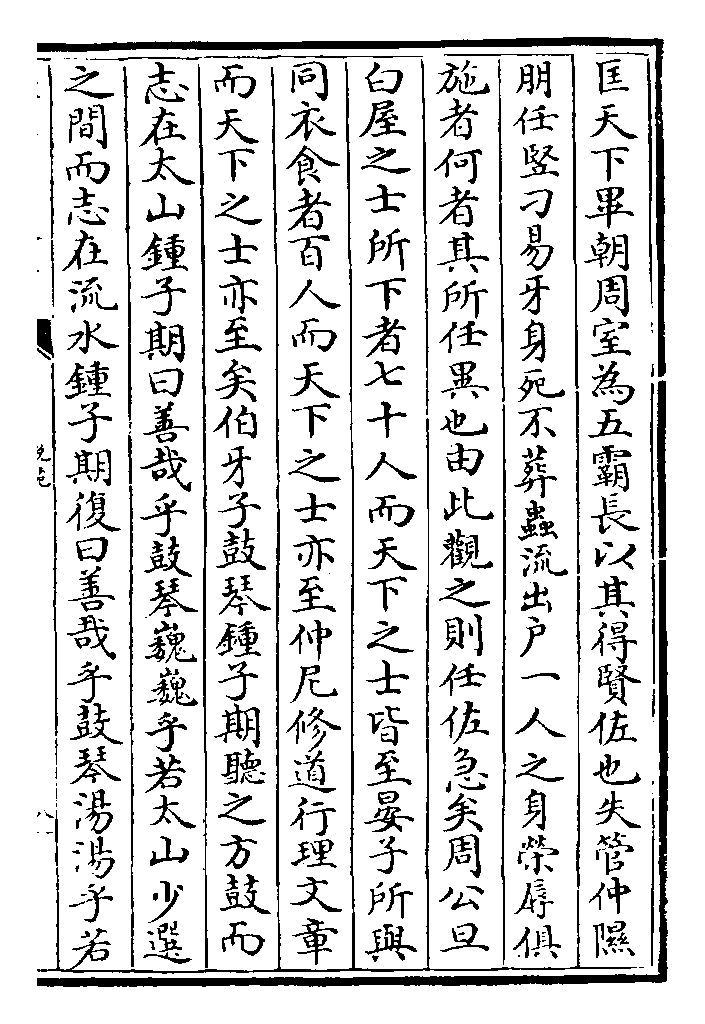 匡天下畢朝周室為五霸長以其得賢佐也失管仲隰
朋任竪刁易牙身死不葬蟲流出戸一人之身榮辱俱
施者何者其所任異也由此觀之則任佐急矣周公旦
白屋之士所下者七十人而天下之士皆至晏子所與
同衣食者百人而天下之士亦至仲尼修道行理文章
而天下之士亦至矣伯牙子鼓琴鍾子期聽之方鼓而
志在太山鍾子期曰善哉乎鼓琴巍巍乎若太山少選
之間而志在流水鍾子期復曰善哉乎鼓琴湯湯乎若
說苑